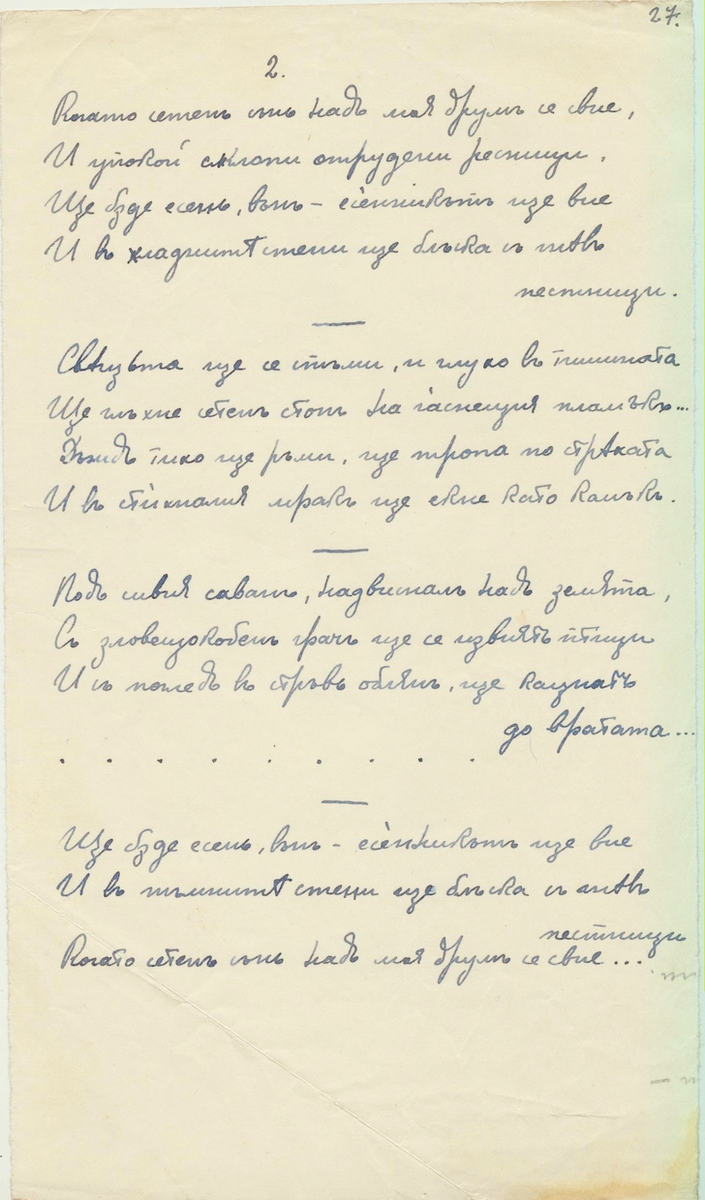 27.
2.
Когато сетенъ сънь надъ моя друмъ се свие,
И упокой склопи отрудени ресници,
Ще бѫде есень, вънъ - есèнникътъ ще вие
И въ хладнитѣ стени ще блъска съ гнѣвъ
пестници.
Свѣщьта ще се стъми, и глухо въ тишината
Ще глъхне сетенъ стонъ на гаснещия пламъкъ...
Дъждъ тихо ще ръми, ще тропа по стрѣхата
И въ стихналия мракъ ще екне като камъкъ.
Подъ сивия саванъ, надвисналъ надъ земята,
Съ зловещокобенъ грачъ ще се извиятъ птици
И съ погледъ въ стръвь облянъ, ще кацнатъ
до вратата...
. . . . . . . . .
Ще бѫде есень, вънъ - есèнникътъ ще вие
И въ тъмнитѣ стени ще блъска съ гнѣвъ
пестници
Когато сетенъ сънь надъ моя друмъ се свие...